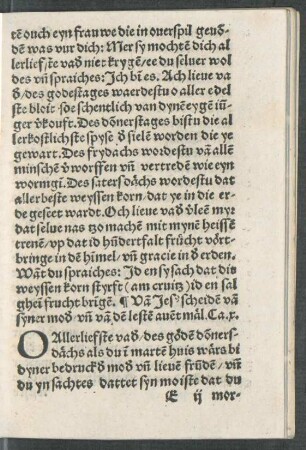 tē ouch eyn frau we die in ouerspil geuō-
dē was vur dich: Mer sy mochtē dich al
lerlief/te vad niet krygē/ee du seluer wol
des vn̄ spraiches: Jch bi es. Ach lieue va
d/des godestages waerdestu o aller edel
ste bloit /so schentlich van dynē eygē iū-
ger v̓kouft. Des dōnerstages bistu die al
lerkostlichste spyse d̓ sielē worden die ye
gewart. Des frydachs wordestu vā allē
minschē v̓worffen vn̄ vertredē wie eyn
wormgī. Des saters dachs wordestu dat
allerbeste weyssen korn/dat ye in die er-
de geseet wardt. Och lieue vad v̓lēē my:
dat selue nas tzo machē mit mynē heissē
trenē/vp dat id hūdertfalt frücht vōrt-
bringe in dē himel/vn̄ gracie in d̓ erden.
Wāt du spraiches: Jd en sy sach dat dit
weyssen korn styrft (am cruitz) id en sal
ghei frucht brigē. ¶ Vā Jes⁹ scheidē vā
syner mod̓ vn̄ vā dē lestē auēt māl. Ca.x.
O Allerliefste vad̓/des gōdē dōners-
dachs als du ī martē huis wārs bi
dyner bedruckd̓ mod̓ vn̄ lieuē frūdē/vn̄
du yn sachtes dattet sȳn moiste dat du
E ij mor-